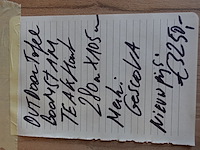 OUTDOOR Tafel
BOOMSTAM
TEAK Hout
280cm X 105cm
Merk:
Gescova
NIEUW prijs
£3250,-